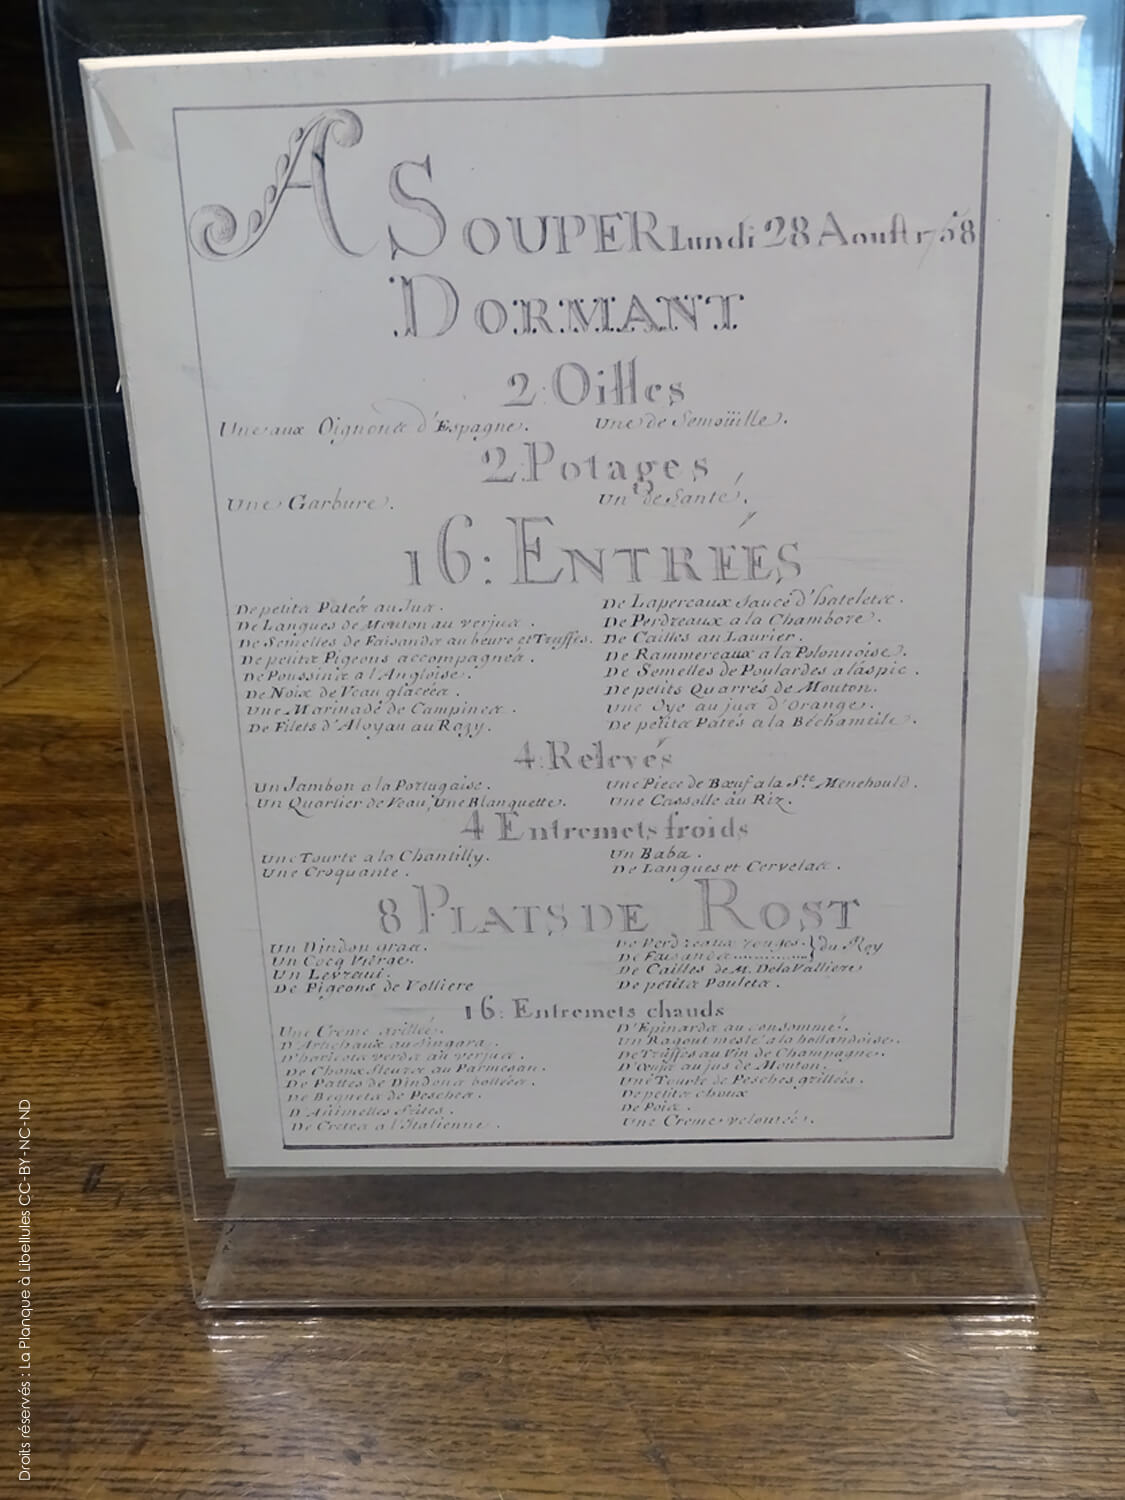 A SOUPER Lundi 28 Aoust 1758
DORMANT
2 Oilles
Une aux Oignons d'Espagne. Une de Semoüille.
2 Potages
Une Garbure. Un de Santé.
16: ENTRÉES
De petits Patés au Jus. De Lapereaux Sauce d'hatelets.
De Langues de Mouton au verjus. De Perdreaux a la Chambore.
De Semelles de Faisands au beure et Truffes. De Cailles au Laurier.
De petits Pigeons accompagnés. De Rammereaux a la Polonnoise.
De Poussins a l'Angloise. De Semelles de Poulardes a láspic.
De Noix de Veau glacées. De petits Quarrés de Mouton.
Une Marinade de Campines. Une Oye au jus d'Orange.
De Filets d'Aloyau au Rozy. De petits Patés a la Béchameile.
4: Relevés
Un Jambon a la Portugaise. Une Piece de Bœuf a la Ste. Menehould.
Un Quartier de Veau, Une Blanquette. Une Cassolle au Riz.
4 Entremets froids
Une Tourte a la Chantilly. Un Baba.
Une Croquante. De Langues et Cervelas.
8 PLATS DE ROST
Un Dindon gras. De Perdreaux rouges. } du Roy
Un Cocq Vierge. De Faisands............
Un Levreau. De Cailles de M. De la Valliere
De Pigeons de Volliere De petits Poulets.
16: Entremets chauds
Une Creme grillée. D'Epinards au consommé.
D'Artichaux au Singara. Un Ragout meslé a la hollandoise.
D'haricots verds au verjus. De Truffes au Vin de Champagne.
De Choux fleurs au Parmesan. D'Oeufs au jus de Mouton.
De Pattes de Dindons bottées. Une Tourte de Pesches grillées.
De Begnets de Pesches. De petits choux
D'Animelles frites. De Pois.
De Cretes a l'Italienne. Une Creme veloutée.
Droits réservés : La Planque à Libellules CC-BY-NC-ND